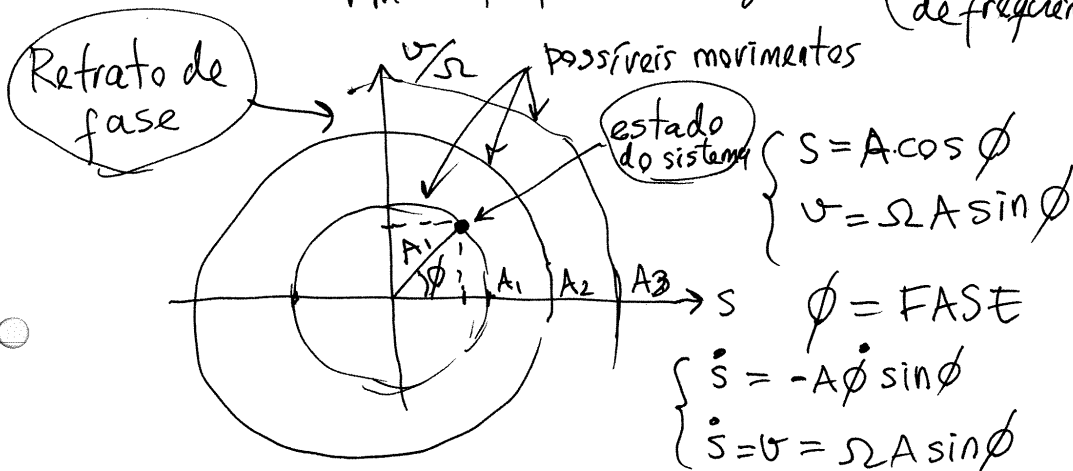 (de frequen
Retrato de
fase
v/Ω
possíveis movimentos
estado
do sistema
s = A.cos ϕ
v = ΩA sin ϕ
A₁
ϕ
A₁
A₂
A3
s
ϕ = FASE
ṡ = -Aϕ̇ sinϕ
ṡ = v = ΩA sinϕ